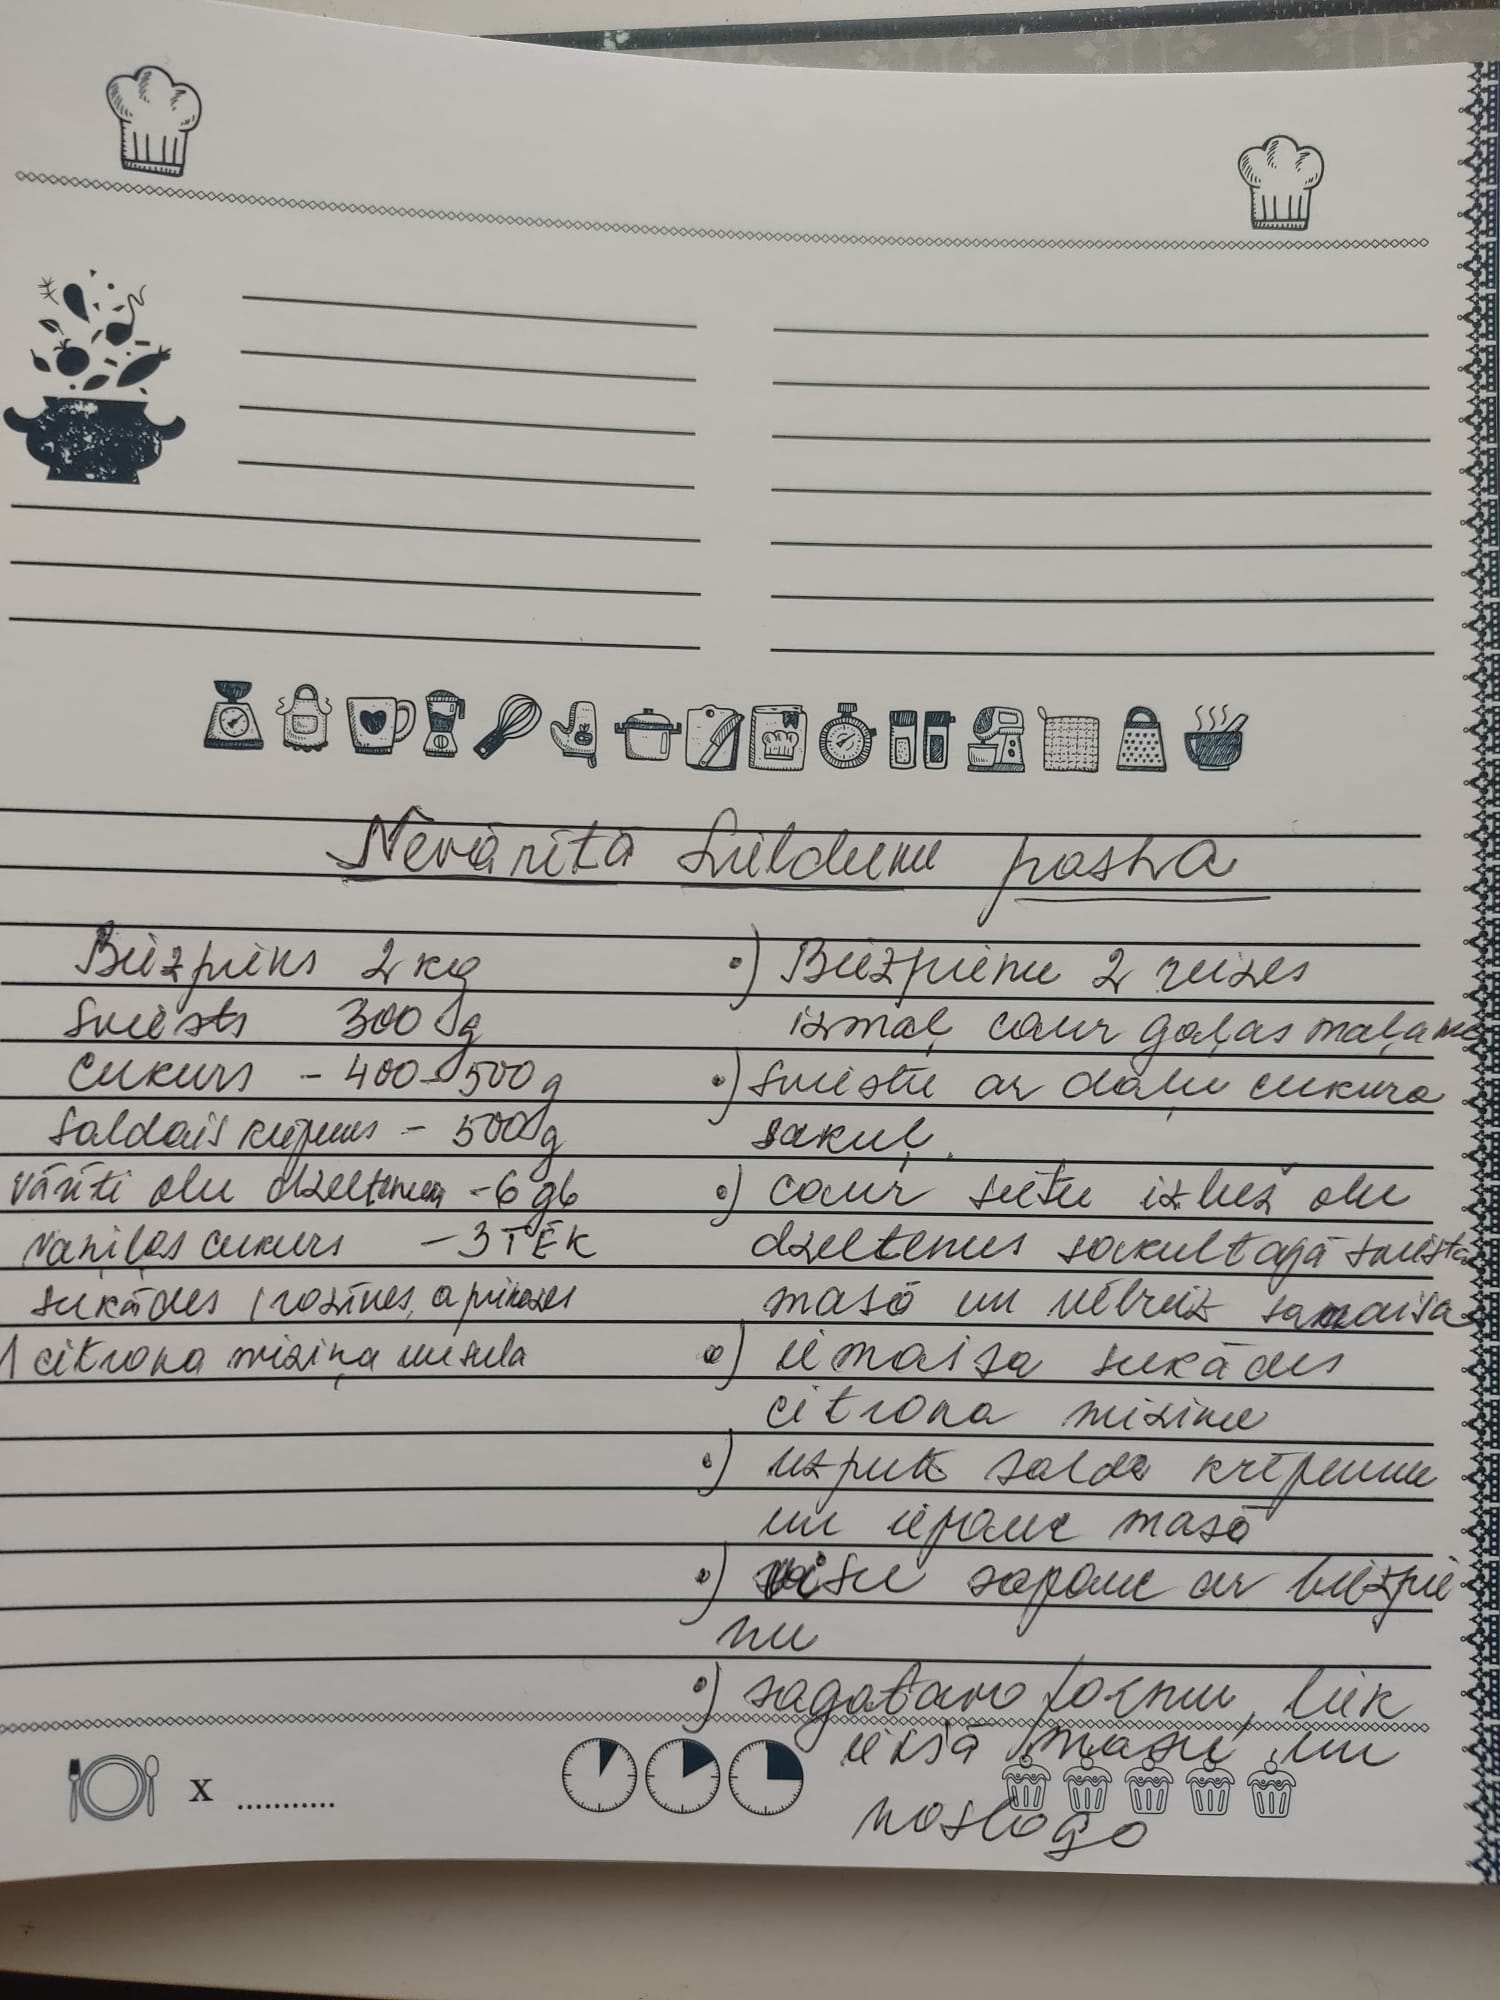 Nevārītā Lieldienu pasha
Biezpiens 2 kg
Sviests 300 g
Cukurs - 400-500 g
Saldais krējums - 500 g
vārīti olu dzeltenumi - 6 gb
vaniļas cukurs - 3 TĒK
sukādes, rozīnes, aprikozes
1 citrona miziņa un sula
•) Biezpienu 2 reizes
izmaļ caur gaļas maļamo
•) Sviestu ar daļu cukura
sakuļ.
•) caur sietu izbež olu
dzeltenus sakultajā sviesta
masā un vēlreiz samaisa
•) iemaisa sukādes
citrona miziņu
•) uzputo saldo krējumu
un iepauž masā
•) visu sapauž ar biezpie
nu
•) sagatavo formu, liek
iekšā masu un
noslogo
x ...........